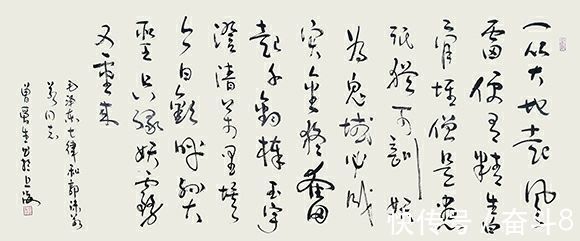 一从大地起风
雷便有精生白
骨堆僧是愚
氓犹可训妖
为鬼蜮必成
灾金猴奋
起千钧棒玉宇
澄清万里埃
今日欢呼孙大
圣只缘妖雾
又重来
毛泽东七律和郭沫
若同志
曾生书于上海
快传号/奋斗8